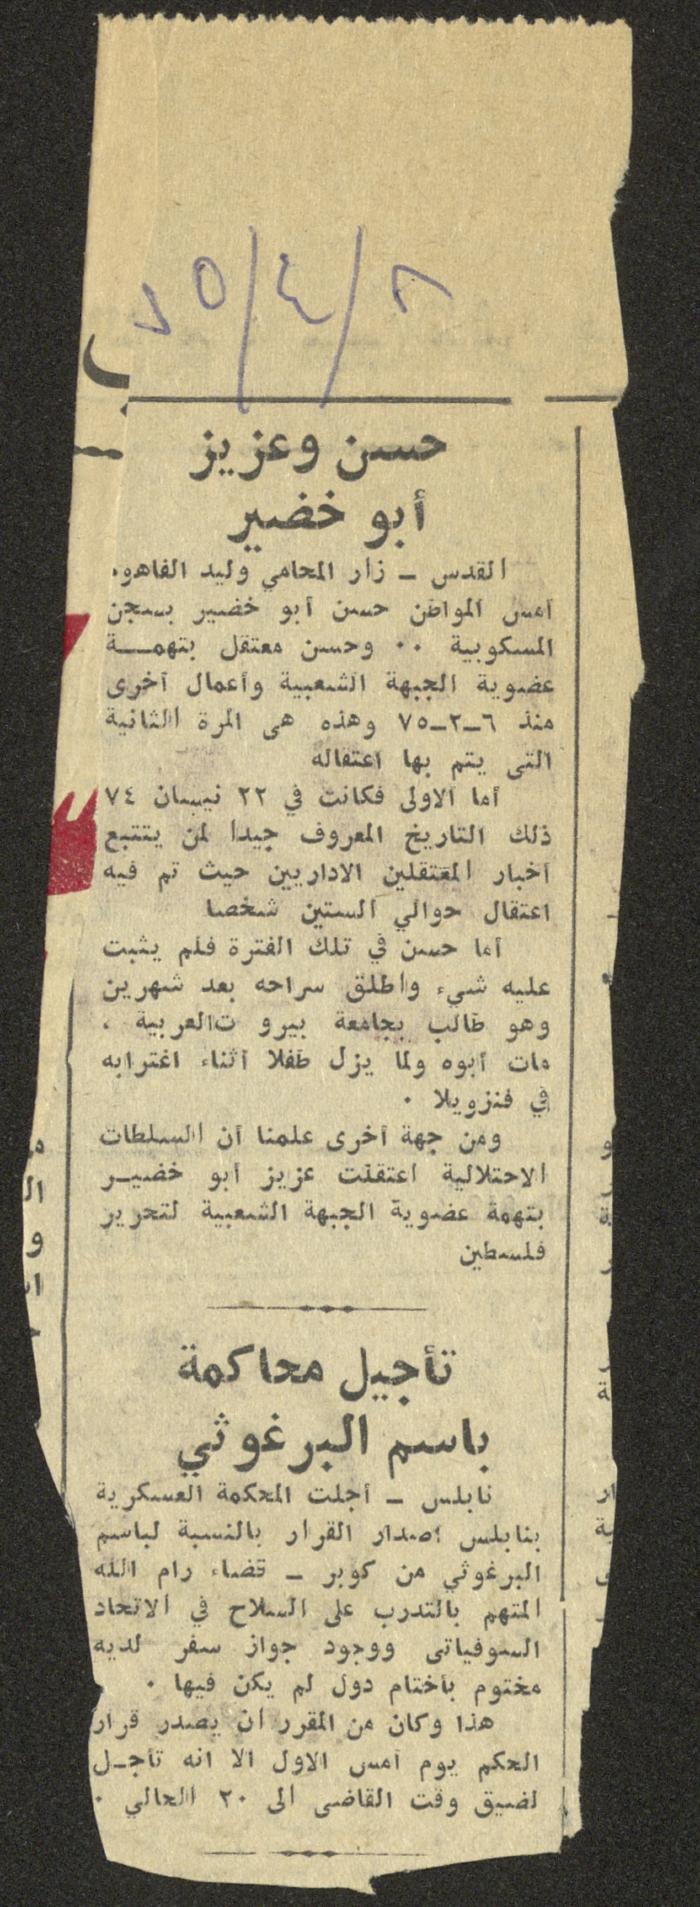 ٢/٤/٧٥
حسن وعزيز
أبو خضير
القدس ــ زار المحامي وليد الفاهوم
أمس المواطن حسن أبو خضير بسجن
المسكوبية ٠٠ وحسن معتقل بتهمـــة
عضوية الجبهة الشعبية وأعمال أخرى
منذ ٦ــ٢ــ٧٥ وهذه هى المرة الثانية
التى يتم بها اعتقاله
أما الاولى فكانت في ٢٢ نيسان ٧٤
ذلك التاريخ المعروف جيدا لمن يتتبع
أخبار المعتقلين الاداريين حيث تم فيه
اعتقال حوالي الستين شخصا
أما حسن في تلك الفترة فلم يثبت
عليه شيء واطلق سراحه بعد شهرين
وهو طالب بجامعة بيرو تالعربية ،
مات أبوه ولما يزل طفلا أثناء اغترابه
في فنزويلا ٠
ومن جهة أخرى علمنا أن السلطات
الاحتلالية اعتقلت عزيز أبو خضيـر
بتهمة عضوية الجبهة الشعبية لتحرير
فلسطين
تأجيل محاكمة
باسم البرغوثي
نابلس ــ أجلت المحكمة العسكرية
بنابلس اصدار القرار بالنسبة لباسم
البرغوثي من كوبر ــ قضاء رام الله
المتهم بالتدرب على السلاح في الاتحاد
السوفياتى ووجود جواز سفر لديه
مختوم بأختام دول لم يكن فيها ٠
هذا وكان من المقرر أن يصدر قرار
الحكم يوم أمس الاول الا انه تأجـل
لضيق وقت القاضى الى ٢٠ الحالي ٠